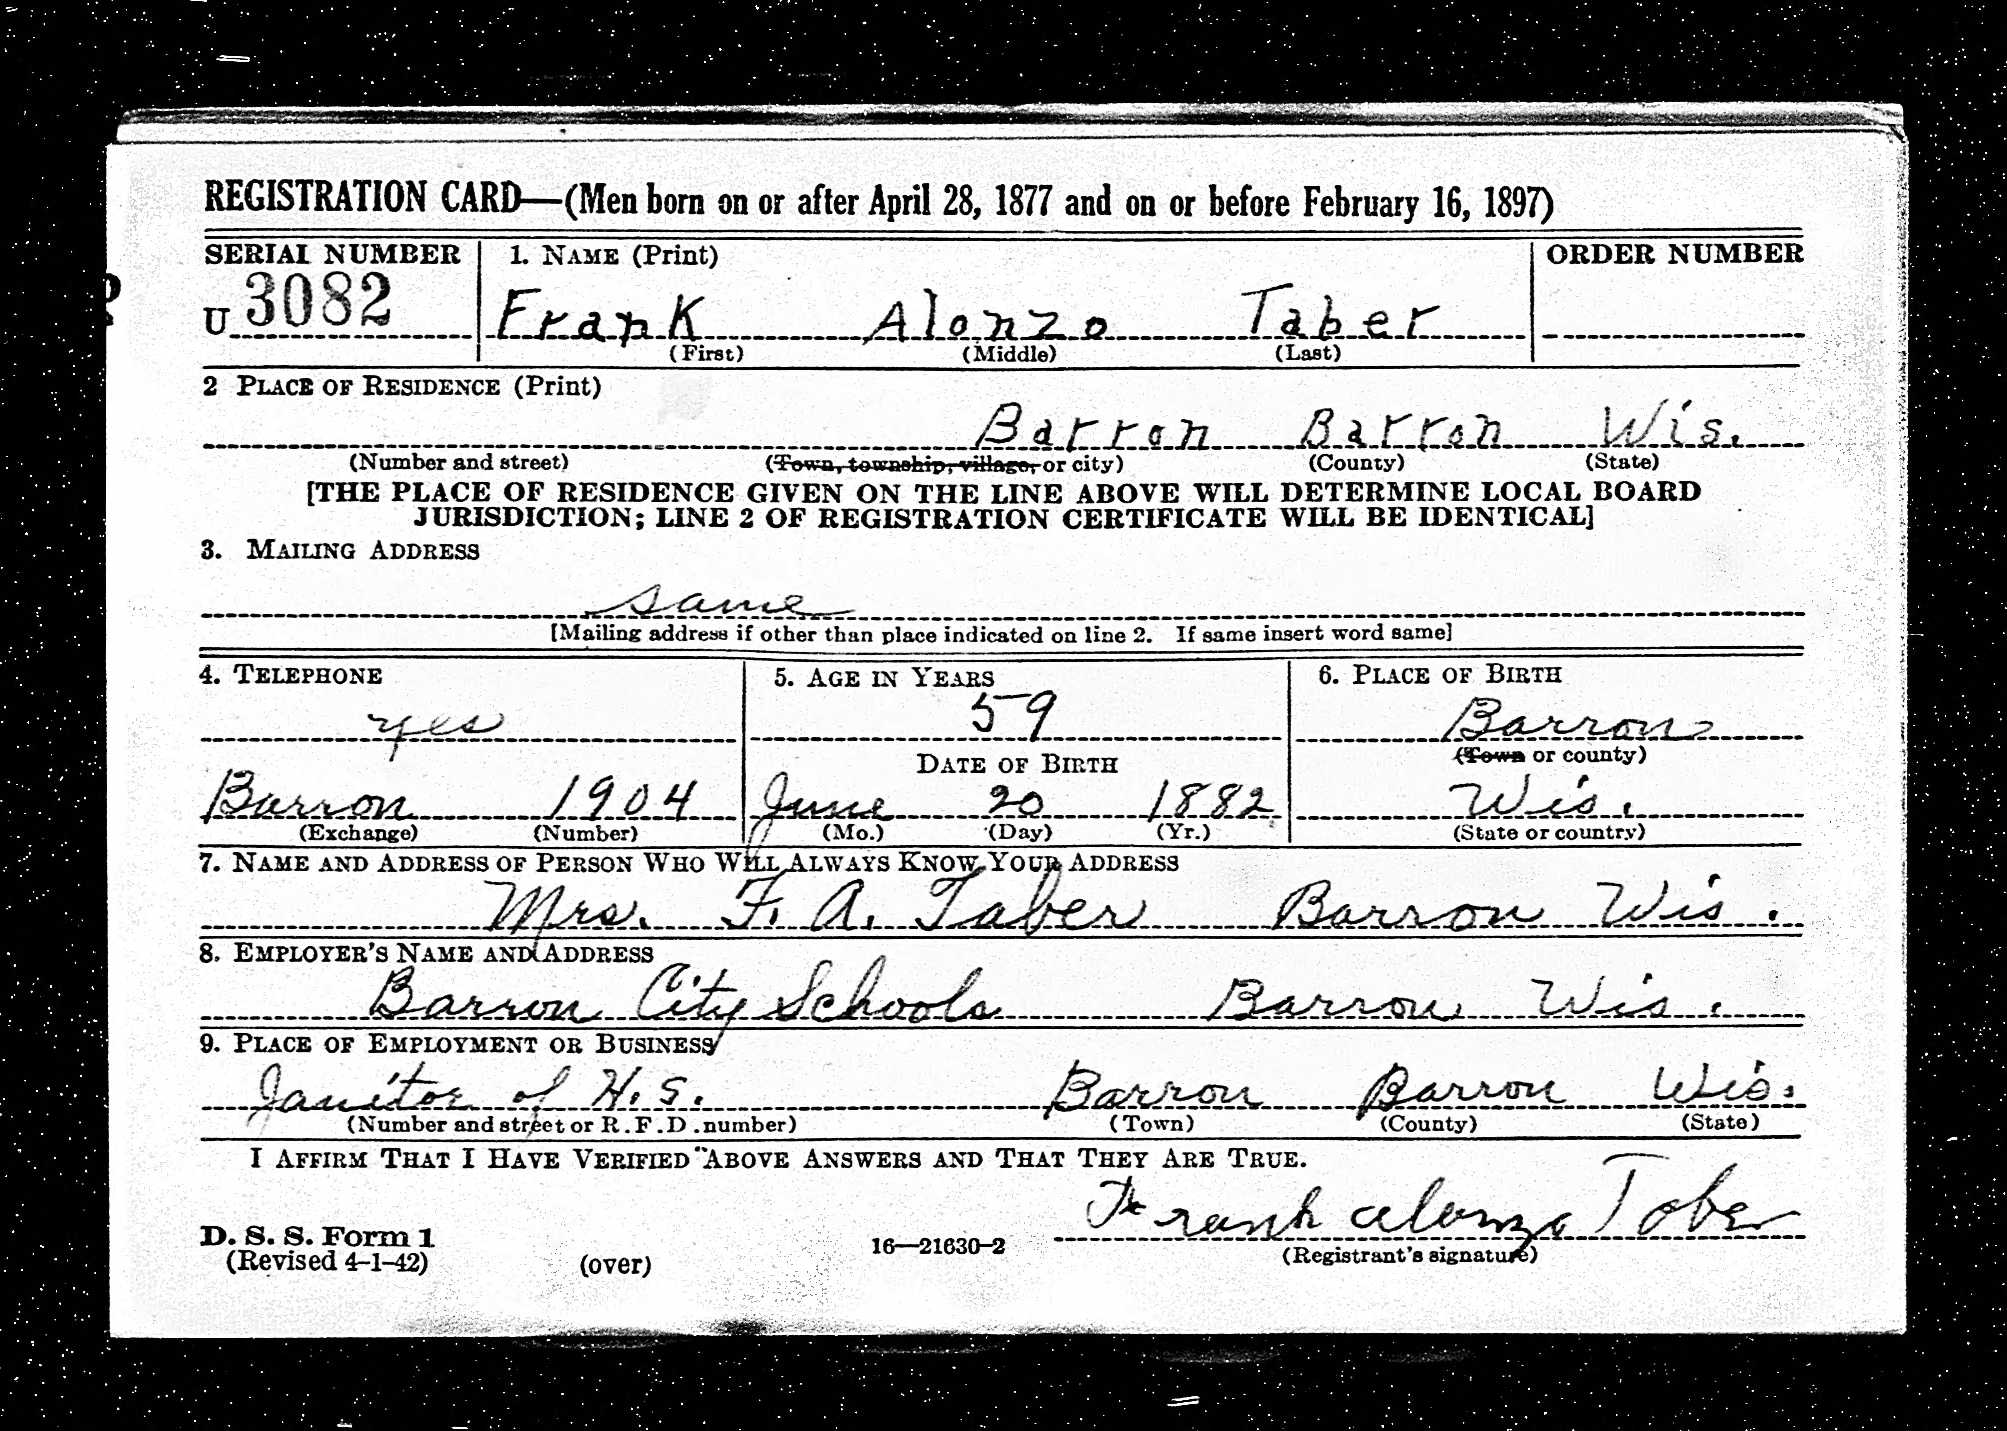 REGISTRATION CARD—(Men born on or after April 28, 1877 and on or before February 16, 1897)
SERIAL NUMBER 1. NAME (Print) ORDER NUMBER
U 3082 Frank Alonzo Taber
(First) (Middle) (Last)
2 PLACE OF RESIDENCE (Print)
Barron Barron Wis.
(Number and street) (Town, township, village, or city) (County) (State)
[THE PLACE OF RESIDENCE GIVEN ON THE LINE ABOVE WILL DETERMINE LOCAL BOARD
JURISDICTION; LINE 2 OF REGISTRATION CERTIFICATE WILL BE IDENTICAL]
3. MAILING ADDRESS
same
[Mailing address if other than place indicated on line 2. If same insert word same]
4. TELEPHONE 5. AGE IN YEARS 6. PLACE OF BIRTH
yes 59 Barron
(Town or county)
DATE OF BIRTH
Barron 1904 June 20 1882 Wis.
(Exchange) (Number) (Mo.) (Day) (Yr.) (State or country)
7. NAME AND ADDRESS OF PERSON WHO WILL ALWAYS KNOW YOUR ADDRESS
Mrs. F. A. Taber Barron Wis.
8. EMPLOYER'S NAME AND ADDRESS
Barron City Schools Barron Wis.
9. PLACE OF EMPLOYMENT OR BUSINESS
Janitor of H. S. Barron Barron Wis.
(Number and street or R.F.D. number) (Town) (County) (State)
I AFFIRM THAT I HAVE VERIFIED ABOVE ANSWERS AND THAT THEY ARE TRUE.
Frank Alonzo Taber
D. S. S. Form 1
(Revised 4-1-42) (over) 16—21630-2 (Registrant's signature)